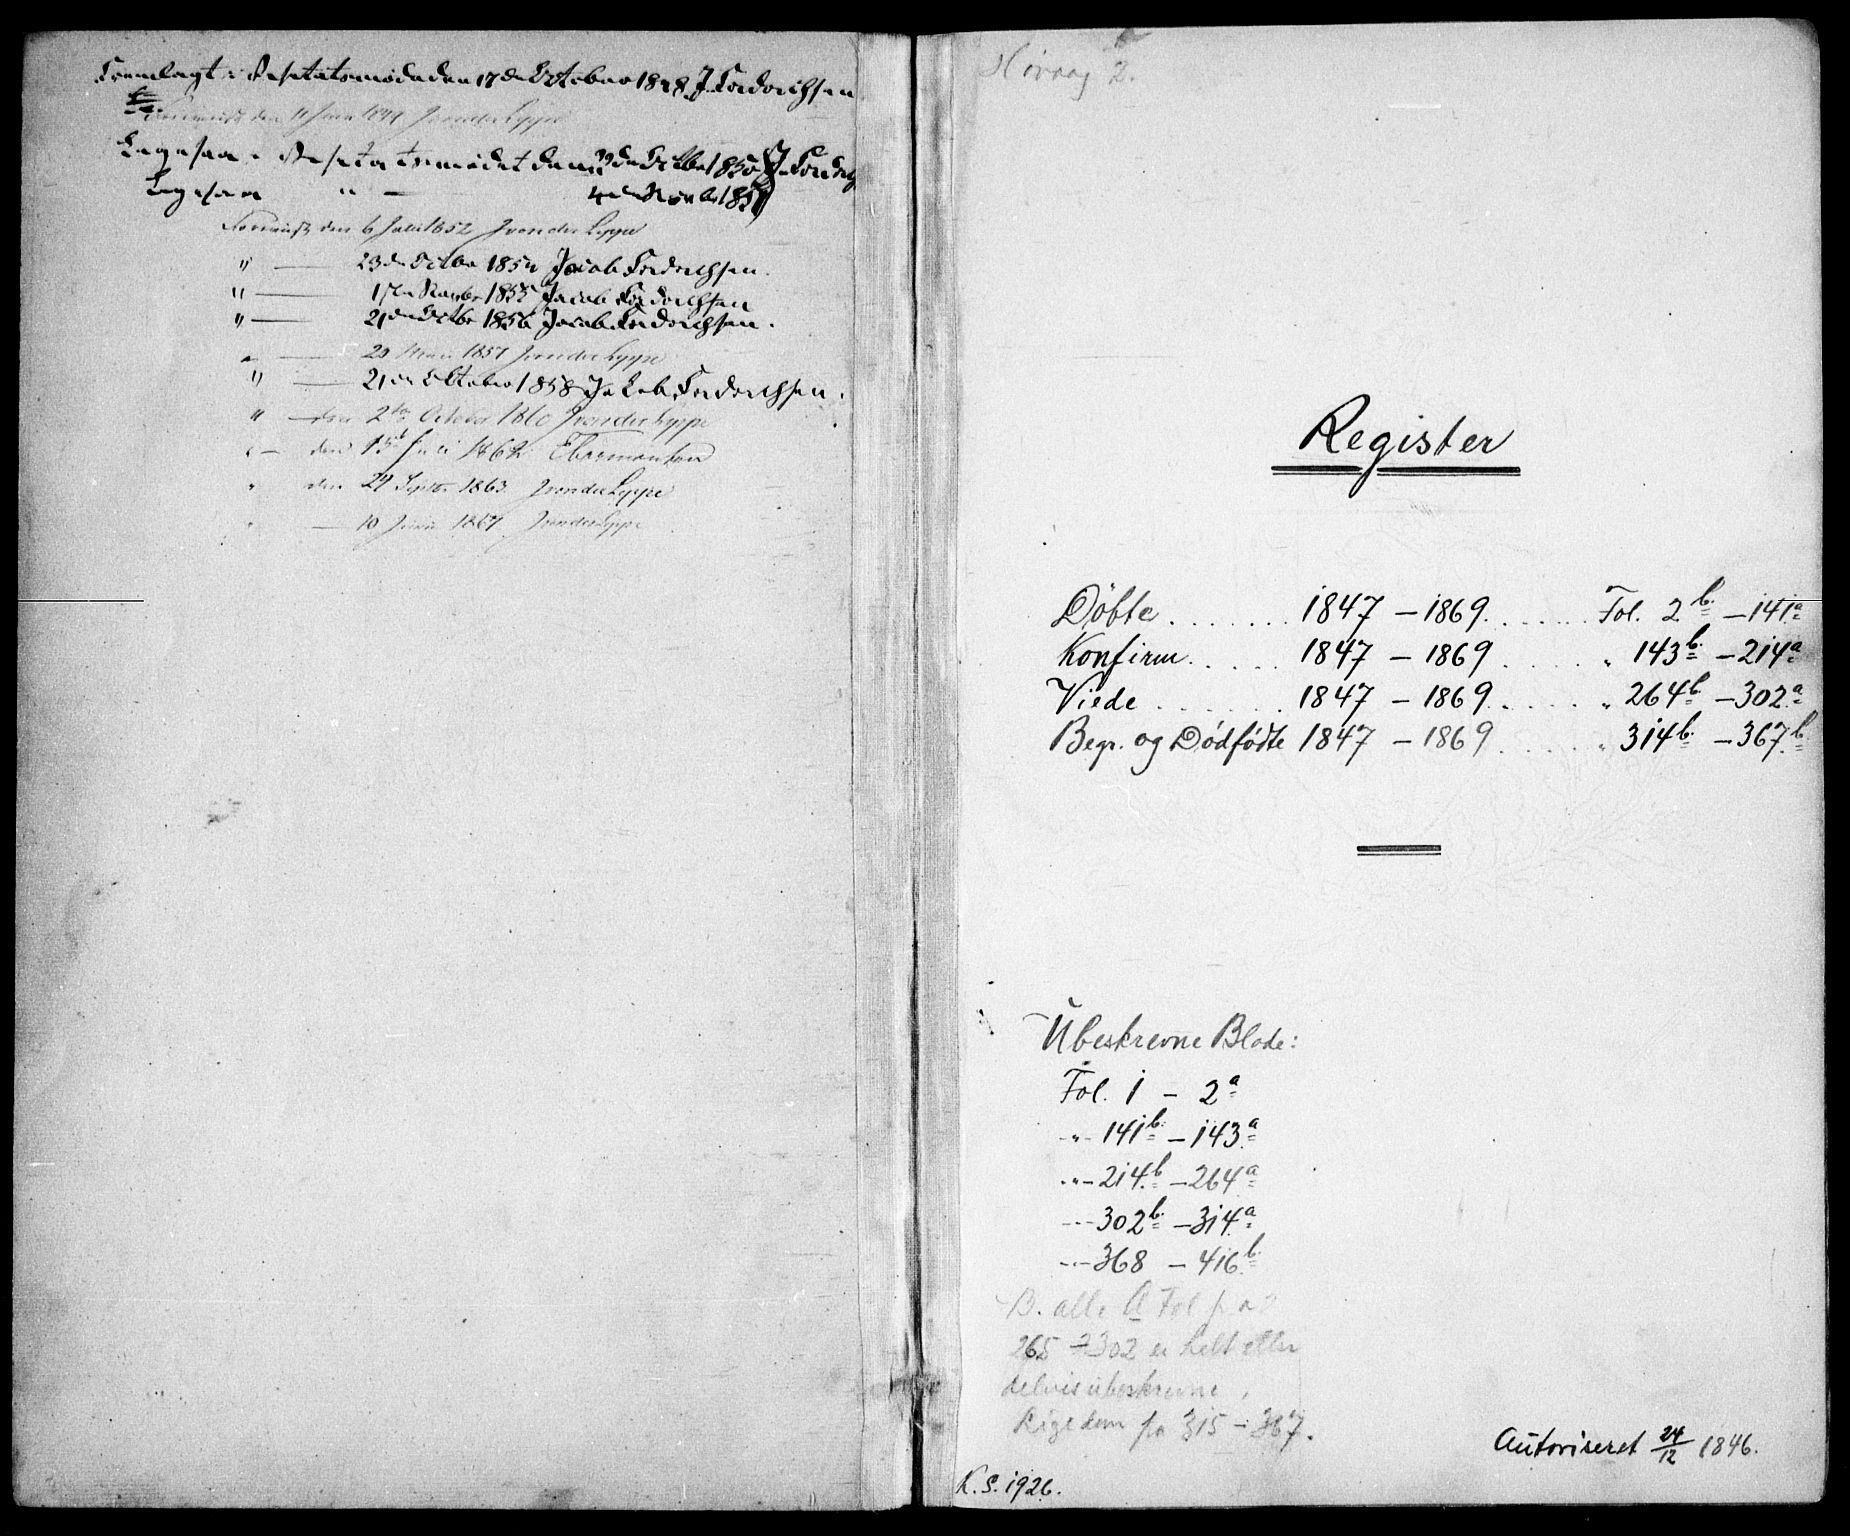 Fremlagt i Visitatsmødet den 17de October 1848 J. Friderichsen
den 11 Juni 1849 J von der Lippe
Eegesaa i Visitatsmødet den de Octbr 1850 J. Friderich
Eegesaa " — 4de Novbr 1851
Revideret den 6 Juli 1852 J von der Lippe
" — 23de Octbr 1854 Jacob Friderichsen.
" — Novbr 1855 Jacob Friderichsen
" — 21de Octbr 1856 Jacob Friderichsen.
" — 20 1857 J von der Lippe
" — 21de October 1858 Jakob Friderichsen.
" — den 2den October 1860 J von der Lippe
" — den 15de Juli 1862
" den 29 Septbr 1863 J von der Lippe
" — 10 Juni 1867 J von der Lippe
Høivaag 2.
Register
Döbte . . . . . . . 1847 – 1869. . . . . . Fol. 2b. – 141a
Konfirm. . . . . 1847 – 1869 . . . . . " 143b. – 214a
Viede . . . . . . . 1847 – 1869. . . . . . " 264b. – 302a
Begr. og Dödfödte 1847 – 1869 . . . . . " 314b. – 367b.
Ubeskrevne Blade:
Fol. 1 – 2a
-"- 141b. – 143a
-"- 214b – 264a
-"- 302b. – 314a
-"- 368 – 416b.
B. alle A Fol fra
265 – 302 er helt eller
delvis ubeskrevne.
Ligedem fra 315 – 367.
Autoriseret 24/12 1846.
K. S. 1926.